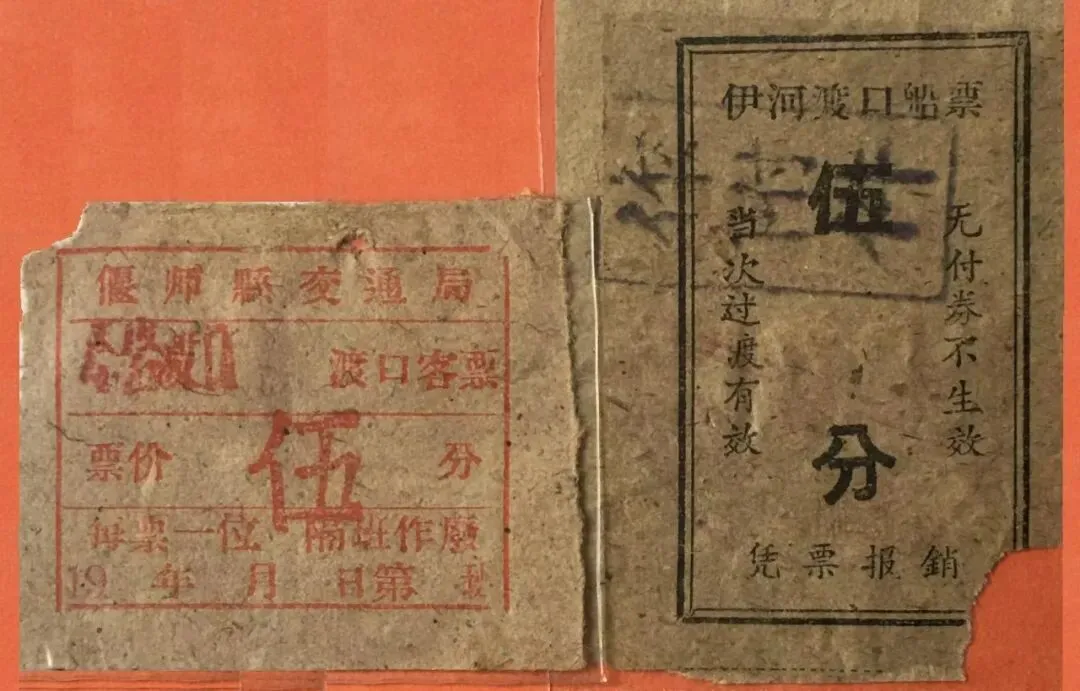 偃师縣交通局
渡口客票
票价 伍 分
每票一位 隔班作廢
19 年 月 日第
伊河渡口船票
伍
分
无付券不生效
当次过渡有效
凭票报銷